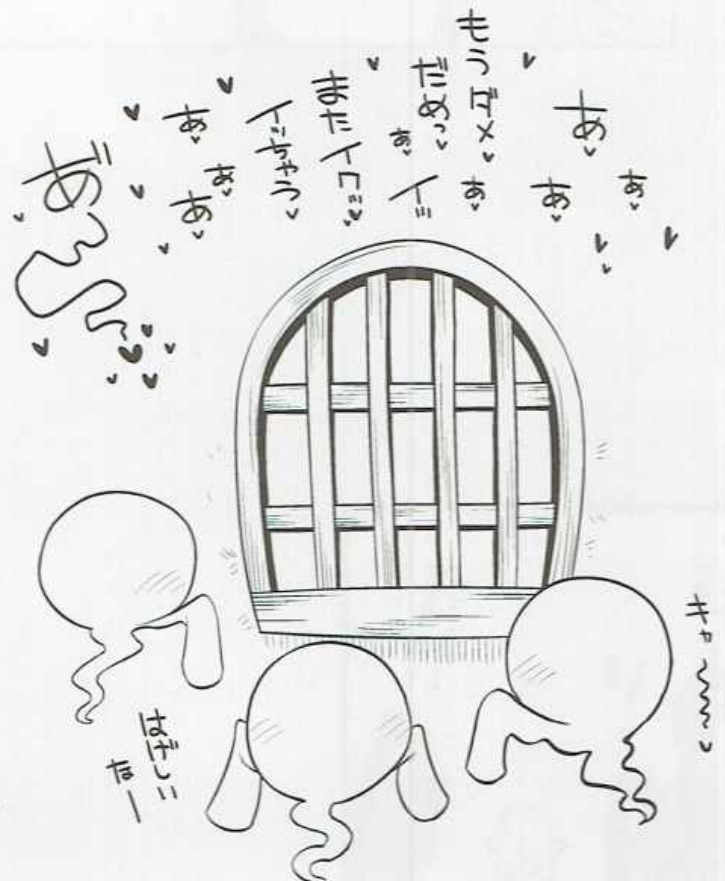 あ♥
あ♥
あ♥
もうダメ♥
だめっ♥
あ♥
あ♥
イ゛
またイクッ♥
イッちゃう♥
あ♥
あ♥
あ♥
あ゛
キャ〜〜〜♥
はげしい
なー